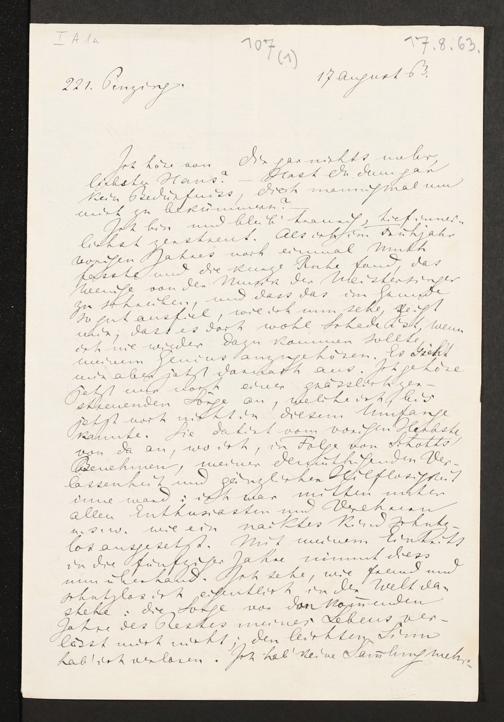 I A 1a
107
(1)
17.8.63.
221. Penzing.
17 August 63.
Ich höre von Dir gar nichts mehr,
liebster Hans? — Hast Du denn gar
kein Bedürfniss, Dich manchmal um
mich zu bekümmern? —
Ich bin und bleib' traurig, tief inner-
lichst zerstreut. Als ich im Frühjahr
vorigen Jahres noch einmal Muth
fasste und die kurze Ruhe fand, das
Wenige von der Musik der Meistersinger
zu schreiben, und dass das im Ganzen
so gut ausfiel, wie ich nun sehe, zeigt
mir, dass es doch wohl Schade ist, wenn
ich nie wieder dazu kommen sollte,
meinem Genius anzugehören. Es sieht
mir aber jetzt darnach aus. Ich gehöre
jetzt nur noch einer grässlich zer-
störenden Sorge an, welche ich bis
jetzt noch nicht in diesem Umfange
kannte. Sie datirt vom vorigen Herbste
von da an, wo ich, in Folge von Schotts
Benehmen, meiner demüthigenden Ver-
lassenheit und gänzlichen Hilflosigkeit
inne ward: ich war mitten unter
allen Enthusiasten und Verehrern
u.s.w. wie ein nacktes Kind schutz-
los ausgesetzt. Mit meinem Eintritt
in die fünfziger Jahre nimmt diess
nun überhand. Ich sehe, wie fremd und
schutzlos ich eigentlich in der Welt da-
stehe: die Sorge vor den kommenden
Jahre des Restes meines Lebens ver-
lässt mich nicht; den leichten Sinn
hab' ich verloren. Ich hab' keine Samlung mehr,